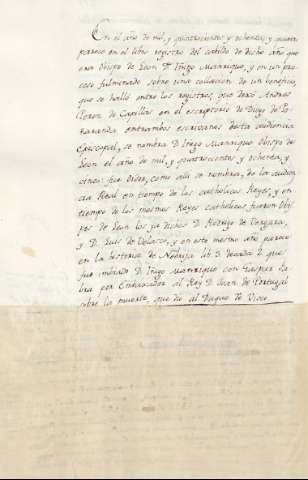 En el año de mil, y quatrocientos, y ochenta, y quatro
parece en el libro registro del cabildo de dicho año que
era obispo de Leon Dn Iñigo Manrrique, y en un pro-
ceso fulminado sobre una collacion de un beneficio,
que se halló entre los registros, que dexó Andres
Perez de Capillas en el escriptorio de Diego de Pe-
ñaranda entrambos escrivanos desta audiencia
Episcopal, se nombra D. Iñigo Manrrique Obispo de
Leon el año de mil, y quatrocientos, y ochenta, y
cinco: fue oidor, como alli se nombra, de la audien-
cia Real en tiempo de los Catholicos Reyes, y en
tiempo de los mesmos Reyes Catholicos fueron Obis-
pos de Leon los ya dichos D. Rodrigo de Vergara,
y D. Luis de Velasco, y en este mesmo año parece
en la historia de Nebrija lib. 3. decada 2. que
fue imbiado D. Iñigo Manrrique con Gaspar Fa-
bra por Embaxador al Rey D. Juan de Portugal
sobre la muerte, que dio al Duque de Viseo